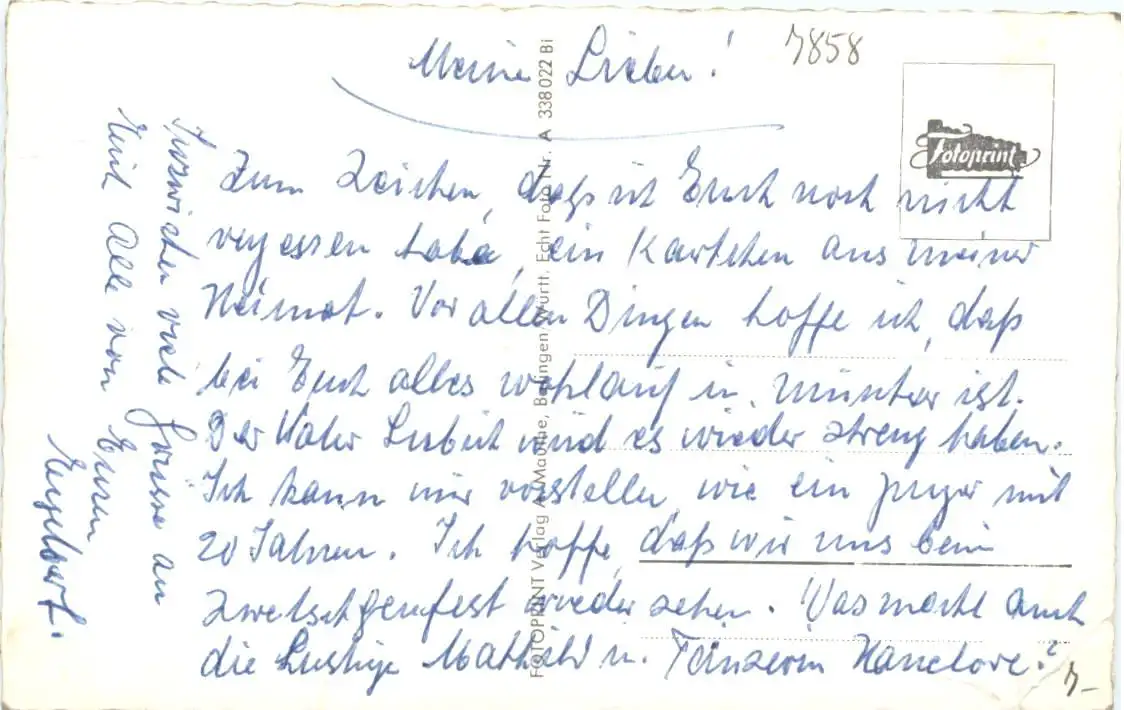 Meine Lieben!
7858
Fotoprint
Zum Zeichen, daß ich Euch noch nicht
vergessen habe, ein Kärtchen aus meiner
Heimat. Vor allen Dingen hoffe ich, daß
bei Euch alles wohlauf u. munter ist.
Der Vater wird es wieder streng haben.
Ich kann mir vorstellen, wie ein junger mit
20 Jahren. Ich hoffe, daß wir uns beim
Zwetschgenfest wieder sehen. Was macht auch
die Lustige Mathild u. Tänzerin Hanelore?
Inzwischen viele Grüsse an
Euch Alle von Euren
Engelbert.
FOTOPRINT Verlag A. Mauthe, Bodingen/Württ. Echt Foto Nr. A 338022 Bi
7-